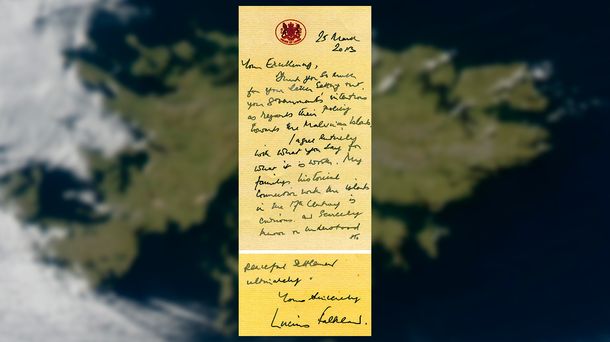 25 March
2013
Your Excellency,
Thank you so much
for your letter setting out
your Government's intentions
as regards their Policy
towards the Malvinas Islands
I agree entirely
with what you say for
what it is worth. My
family's historical
connection with the islands
in the 17th Century is
curious and scarcely
known or understood
Peaceful settlement
ultimately.
Yours sincerely
Lucius Falkland.